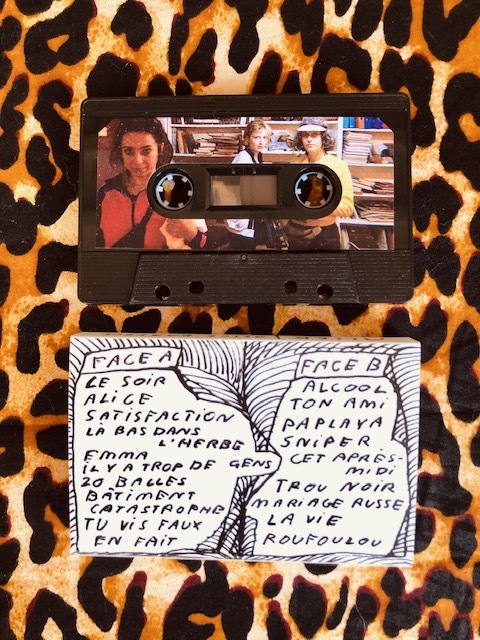 FACE A
LE SOIR
ALICE
SATISFACTION
LÀ BAS DANS
L'HERBE
EMMA
IL Y A TROP DE GENS
20 BALLES
BÂTIMENT
CATASTROPHE
TU VIS FAUX
EN FAIT
FACE B
ALCOOL
TON AMI
PAPLAYA
SNIPER
CET APRÈS-
MIDI
TROU NOIR
MARIAGE RUSSE
LA VIE
ROUFOULOU